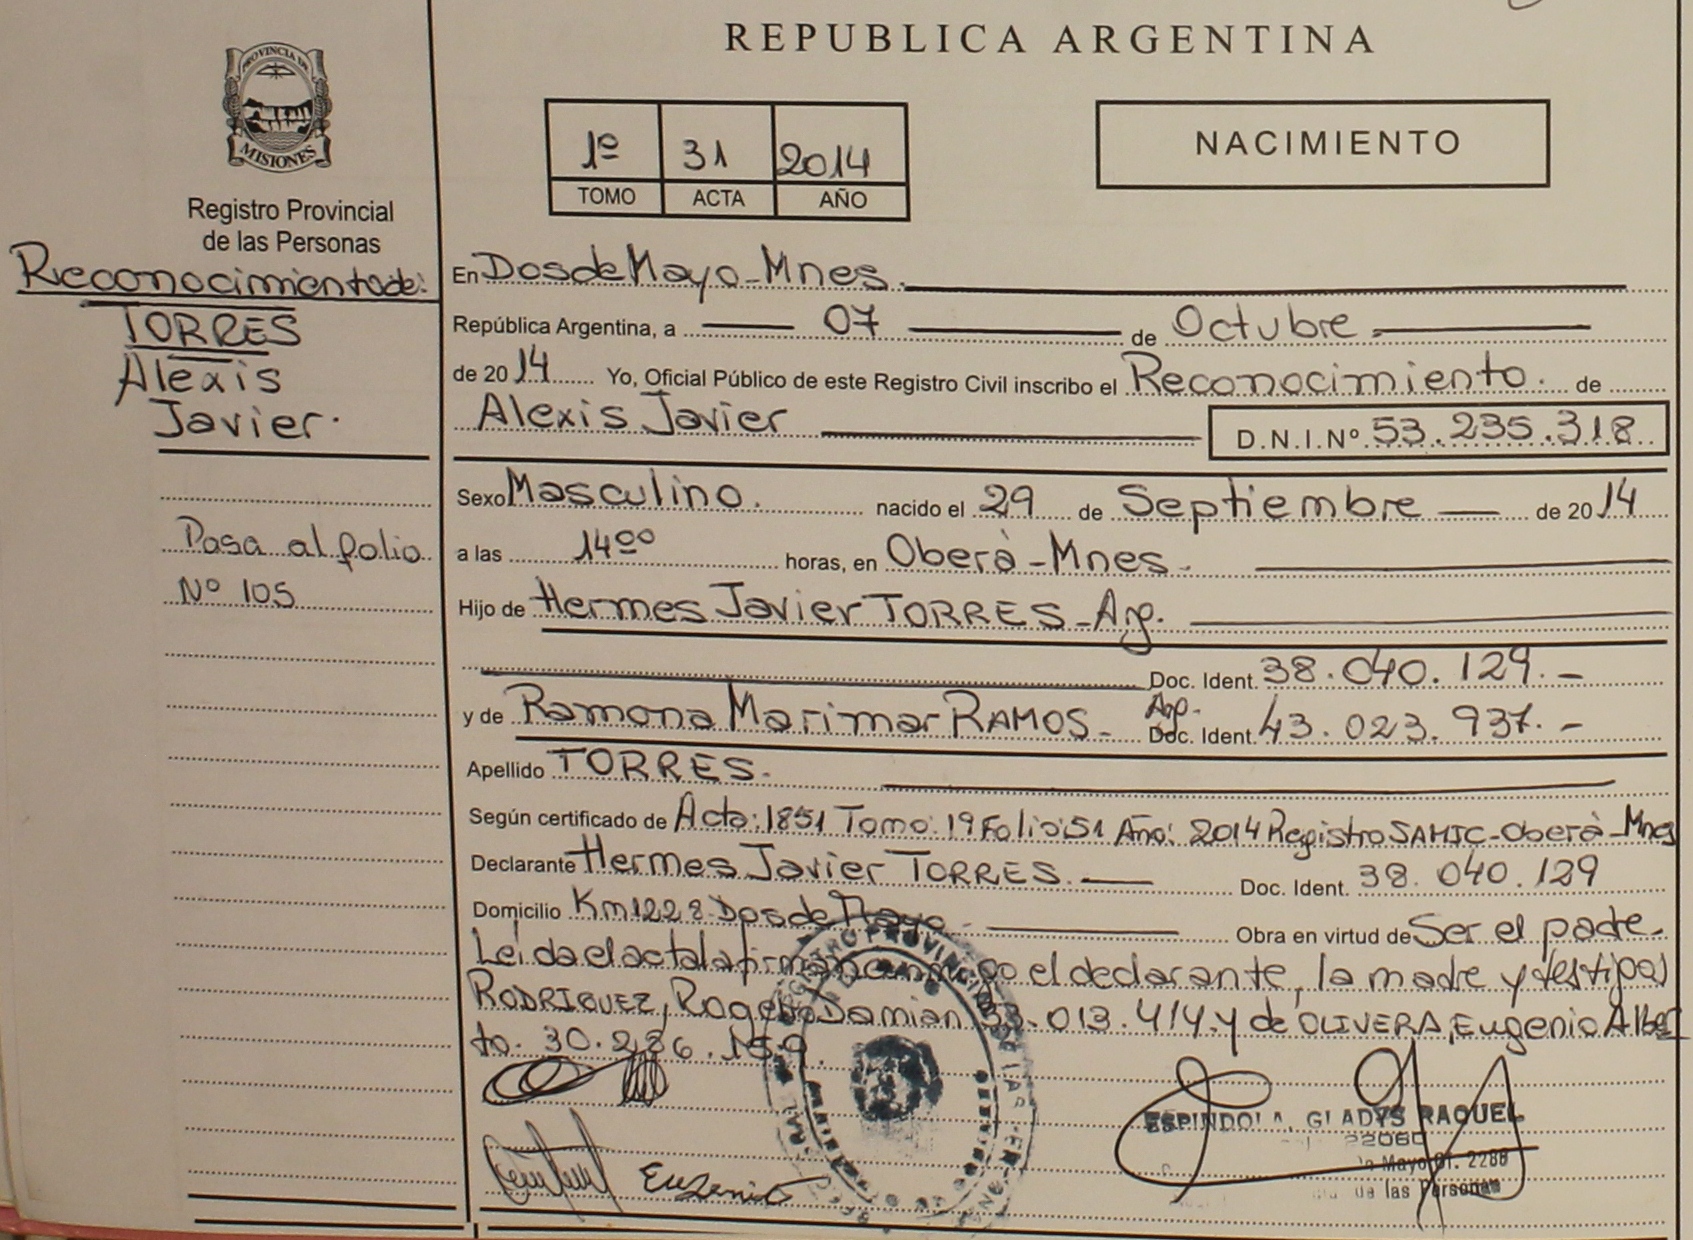 REPUBLICA ARGENTINA
PROVINCIA DE
MISIONES
Registro Provincial
de las Personas
1º 31 2014
TOMO ACTA AÑO
NACIMIENTO
Reconocimiento de:
TORRES
Alexis
Javier.
Pasa al folio
Nº 105
En Dos de Mayo - Mnes.
República Argentina, a 07 de Octubre
de 2014 Yo, Oficial Público de este Registro Civil inscribo el Reconocimiento. de
Alexis Javier D.N.I.Nº 53.235.318
Sexo Masculino. nacido el 29 de Septiembre de 2014
a las 14 00 horas, en Oberà - Mnes.
Hijo de Hermes Javier TORRES - Arg.
Doc. Ident. 38.040.129.-
y de Ramona Marimar RAMOS - Arg. Doc. Ident. 43.023.937.-
Apellido TORRES.
Según certificado de Acta: 1851 Tomo: 19 Folio: 51 Año: 2014 Registro SAMIC - Oberà - Mnes
Declarante Hermes Javier TORRES. Doc. Ident. 38.040.129
Domicilio Km 1228 Dos de Mayo Obra en virtud de Ser el padre.
Leida el acta la firman conmigo el declarante, la madre y testigos
RODRIGUEZ, Rogelio Damian 33.013.414. y de OLIVERA, Eugenio Alber
to. 30.286.159.
Eugenio
ESPINDOLA, GLADYS RAQUEL
Mayo Of. 2288
de las Personas